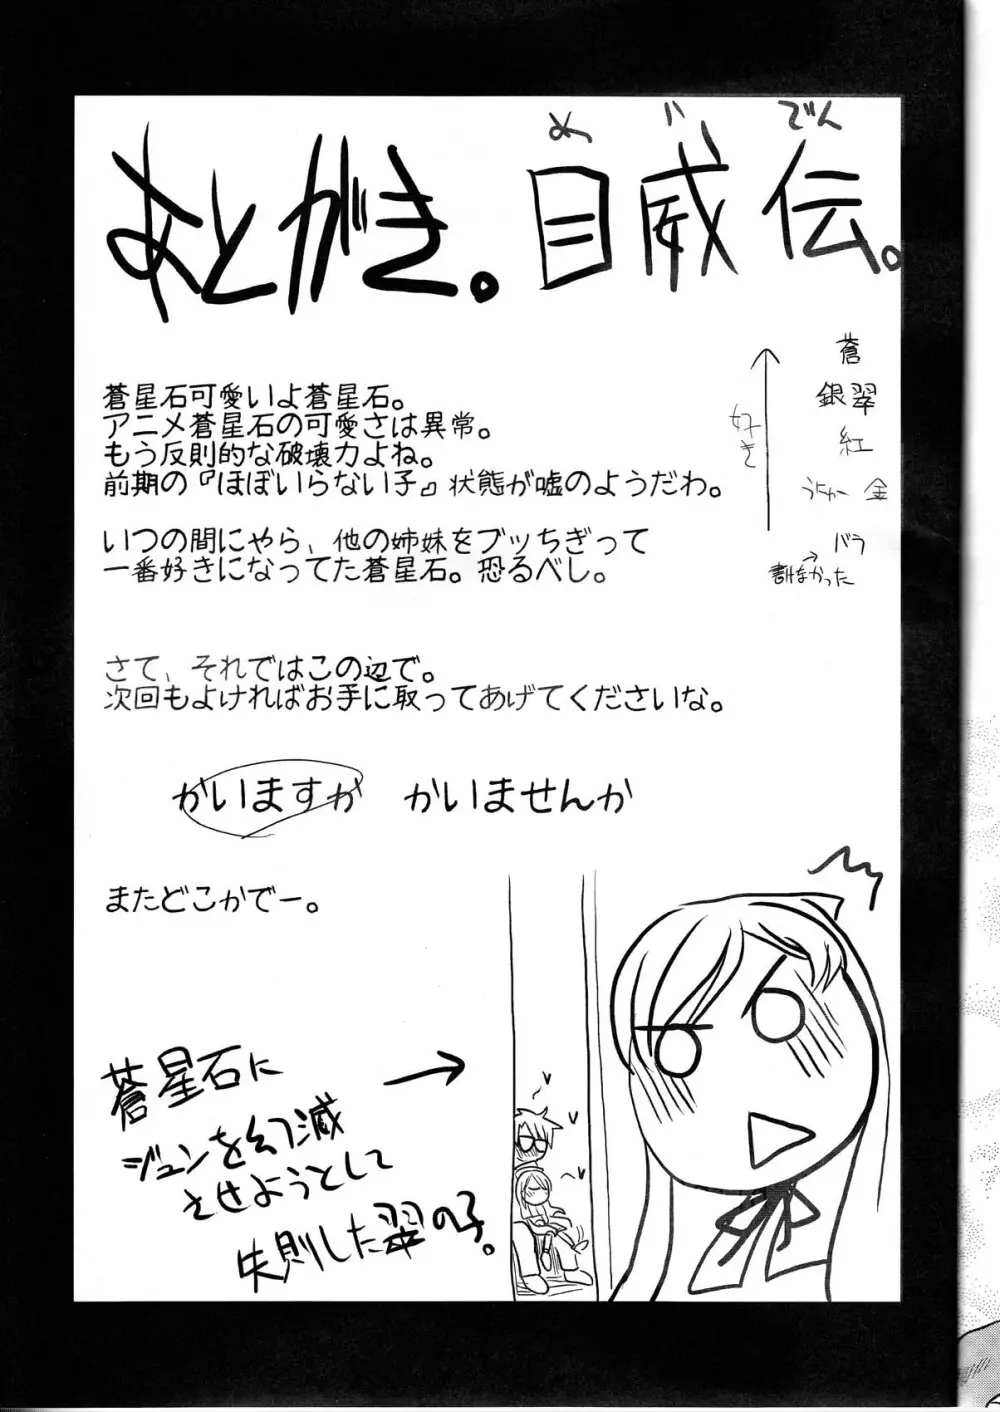 あとがき。目威伝。
め が でん
蒼星石可愛いよ蒼星石。
アニメ蒼星石の可愛さは異常。
もう反則的な破壊力よね。
前期の『ほぼいらない子』状態が嘘のようだわ。
いつの間にやら、他の姉妹をブッちぎって
一番好きになってた蒼星石。恐るべし。
好き
蒼
銀翠
紅
金
バラ
書けなかった
さて、それではこの辺で。
次回もよければお手に取ってあげてくださいな。
かいますか かいませんか
またどこかでー。
蒼星石に
ジュンを幻滅
させようとして
失則した翠の子。